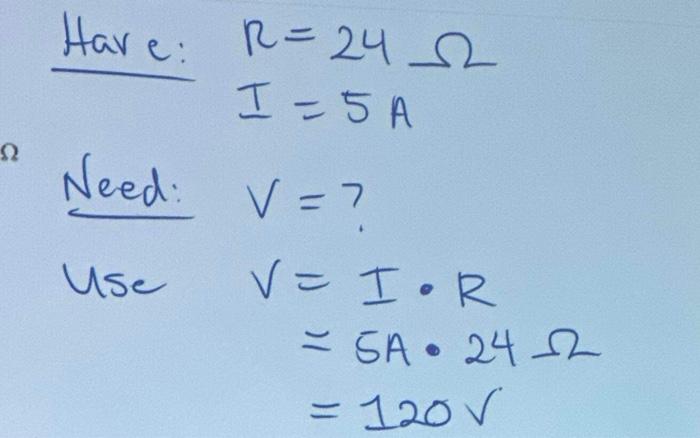 Have: R = 24 Ω
I = 5 A
Ω
Need: V = ?
Use V = I • R
= 5A • 24 Ω
= 120 V